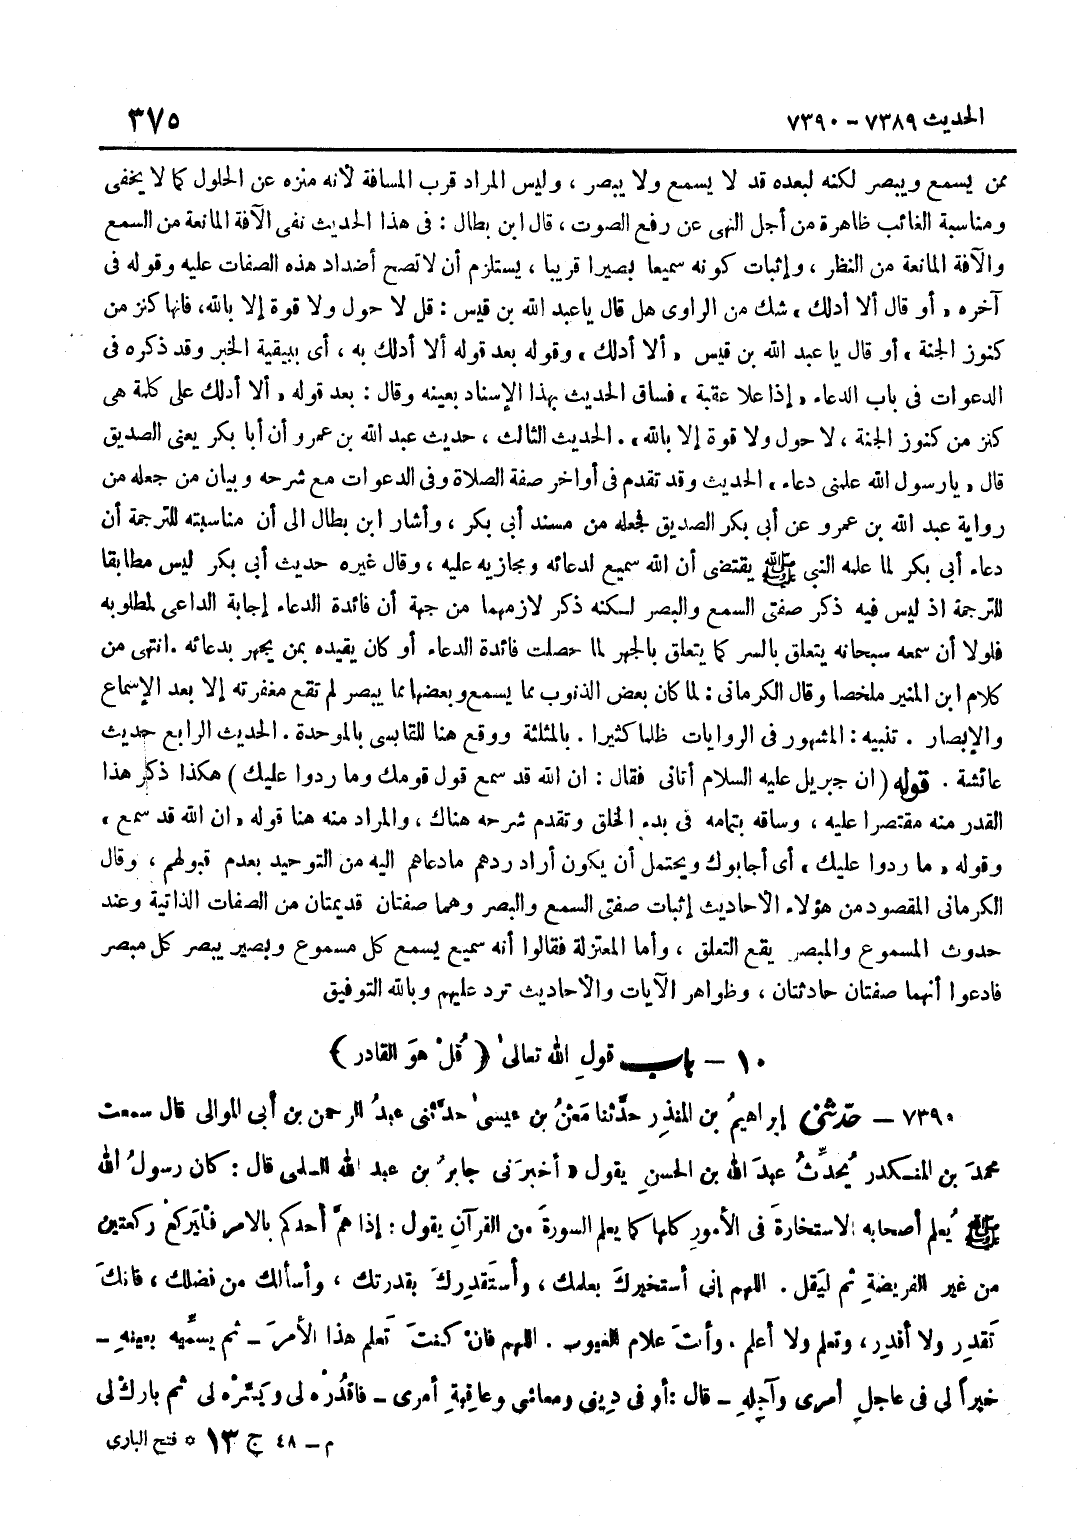 الحديث ٧٣٨٩ – ٧٣٩٠
٣٧٥
ممن يسمع ويبصر لكنه لبعده قد لا يسمع ولا يبصر ، وليس المراد قرب المسافة لأنه منزه عن الحلول كما لا يخفى
ومناسبة الغائب ظاهرة من أجل النهى عن رفع الصوت ، قال ابن بطال : فى هذا الحديث نفى الآفة المانعة من السمع
والآفة المانعة من النظر ، وإثبات كونه سميعا بصيرا قريبا ، يستلزم أن لا تصح أضداد هذه الصفات عليه وقوله فى
آخره « أو قال ألا أدلك » شك من الراوى هل قال ياعبد الله بن قيس : قل لا حول ولا قوة إلا بالله، فانها كنز من
كنوز الجنة » أو قال يا عبد الله بن قيس « ألا أدلك » وقوله بعد قوله ألا أدلك به ، أى ببقية الخبر وقد ذكره فى
الدعوات فى باب الدعاء « إذا علا عقبة » فساق الحديث بهذا الإسناد بعينه وقال : بعد قوله « ألا أدلك على كلمة هى
كنز من كنوز الجنة ، لا حول ولا قوة إلا بالله » . الحديث الثالث ، حديث عبد الله بن عمرو أن أبا بكر يعنى الصديق
قال « يارسول الله علمنى دعاء » الحديث وقد تقدم فى أواخر صفة الصلاة وفى الدعوات مع شرحه وبيان من جعله من
رواية عبد الله بن عمرو عن أبى بكر الصديق لجعله من مسند أبى بكر ، وأشار ابن بطال الى أن مناسبته للترجمة أن
دعاء أبى بكر لما علمه النبي ﷺ يقتضى أن الله سميع لدعائه ومجازيه عليه ، وقال غيره حديث أبى بكر ليس مطابقا
للترجمة اذ ليس فيه ذكر صفتى السمع والبصر لكنه ذكر لازمهما من جهة أن فائدة الدعاء إجابة الداعى لمطلوبه
فلولا أن سمعه سبحانه يتعلق بالسر كما يتعلق بالجهر لما حصلت فائدة الدعاء أو كان يقيده بمن يجهر بدعائه . انتهى من
كلام ابن المنير ملخصا وقال الكرمانى : لما كان بعض الذنوب مما يسمع وبعضها مما يبصر لم تقع مغفرته إلا بعد الإسماع
والإبصار . تنبيه : المشهور فى الروايات ظلما كثيرا . بالمثلثة ووقع هنا للقابسى بالموحدة . الحديث الرابع حديث
عائشة . قوله ( ان جبريل عليه السلام أتانى فقال : ان الله قد سمع قول قومك وما ردوا عليك ) هكذا ذكر هذا
القدر منه مقتصرا عليه ، وساقه بتمامه فى بدء الخلق وتقدم شرحه هناك ، والمراد منه هنا قوله « ان الله قد سمع »
وقوله « ما ردوا عليك » أى أجابوك ويحتمل أن يكون أراد ردهم مادعاهم اليه من التوحيد بعدم قبولهم ، وقال
الكرمانى المقصود من هؤلاء الأحاديث إثبات صفتى السمع والبصر وهما صفتان قديمتان من الصفات الذاتية وعند
حدوث المسموع والمبصر يقع التعلق ، وأما المعتزلة فقالوا أنه سميع يسمع كل مسموع وبصير يبصر كل مبصر
فادعوا أنهما صفتان حادثتان ، وظواهر الآيات والأحاديث ترد عليهم وبالله التوفيق
١٠ – باب قولِ الله تعالى ﴿ قُلْ هوَ القادر ﴾
٧٣٩٠ – حدّثنى إبراهيمُ بن المنذِر حدَّثنا مَعْنُ بن عيسى حدَّثنى عبدُ الرحمن بن أبى الموالى قال سمعت
محمدَ بن المنكدر يُحدِّثُ عبدَ الله بن الحسنِ يقول « أخبرَنى جابرُ بن عبد الله السلمى قال : كان رسولُ الله
ﷺ يُعلم أصحابه الاستخارةَ فى الأمورِ كلها كما يعلم السورةَ من القرآنِ يقول : إذا همَّ أحدكم بالأمر فلْيَركعْ ركعتين
من غير الفريضةِ ثم ليَقل . اللهم إنى أستخيركَ بعلمك ، وأستَقدِركَ بقدرتك ، وأسألك من فضلك ، فانكَ
تَقدر ولا أقدِر ، وتعلم ولا أعلم . وأنتَ علام الغيوب . اللهم فانْ كنتَ تَعلم هذا الأمرَ – ثم يسمِّيه بعينهِ –
خيراً لى فى عاجلِ أمرى وآجِلهِ – قال : أو فى دِينى ومعاشى وعاقبةِ أمرى – فاقدُرْه لى ويَسِّرْه لى ثم بارِكْ لى
م – ٤٨ ج ١٣ * فتح البارى